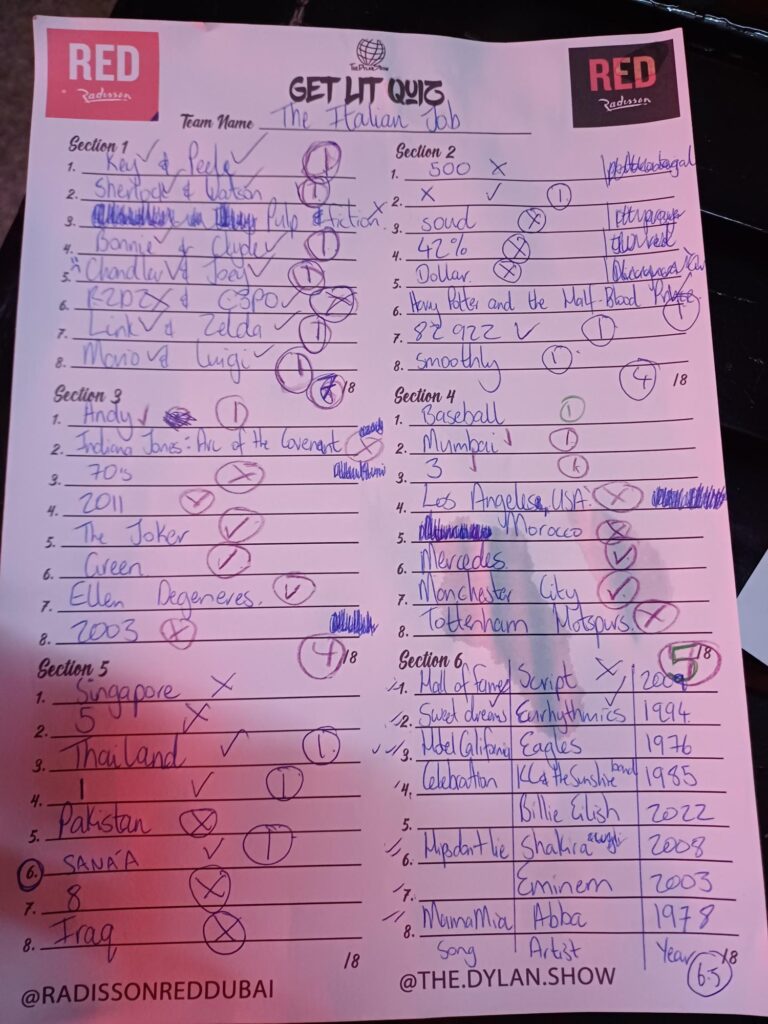 RED
Radisson
THE DYLAN SHOW
GET LIT QUIZ
RED
Radisson
Team Name The Italian Job
Section 1
1. Key & Peele 1
2. Sherlock & Watson 1
3. Pulp & fiction X
4. Bonnie & Clyde 1
5. Chandler & Joey 1
6. R2D2 X & C3PO X
7. Link & Zelda 1
8. Mario & Luigi 1
/8
Section 2
1. 500 X
2. X 1
3. soud X
4. 42% X
5. Dollar X
6. Harry Potter and the Half-Blood Prince 1
7. 82 922 1
8. smoothly 1
4 /8
Section 3
1. Andy 1
2. Indiana Jones: Arc of the Covenant X
3. 70's X
4. 2011
5. The Joker
6. Green
7. Ellen Degeneres.
8. 2003 X
4 /8
Section 4
1. Baseball 1
2. Mumbai 1
3. 3
4. Los Angeles, USA. X
5. Morocco X
6. Mercedes
7. Manchester City
8. Tottenham Hotspurs. X
5 /8
Section 5
1. Singapore X
2. 5 X
3. Thailand 1
4. 1 1
5. Pakistan X
6. SANA'A 1
7. 8 X
8. Iraq X
/8
Section 6
1. Hall of Fame Script X
2. Sweet dreams Eurhythmics 1994
3. Hotel California Eagles 1976
4. Celebration KC & the Sunshine band 1985
5. Billie Eilish 2022
6. Hips dont lie Shakira 2008
7. Eminem 2003
8. MamaMia Abba 1978
Song Artist Year /8
6.5
@RADISSONREDDUBAI
@THE.DYLAN.SHOW